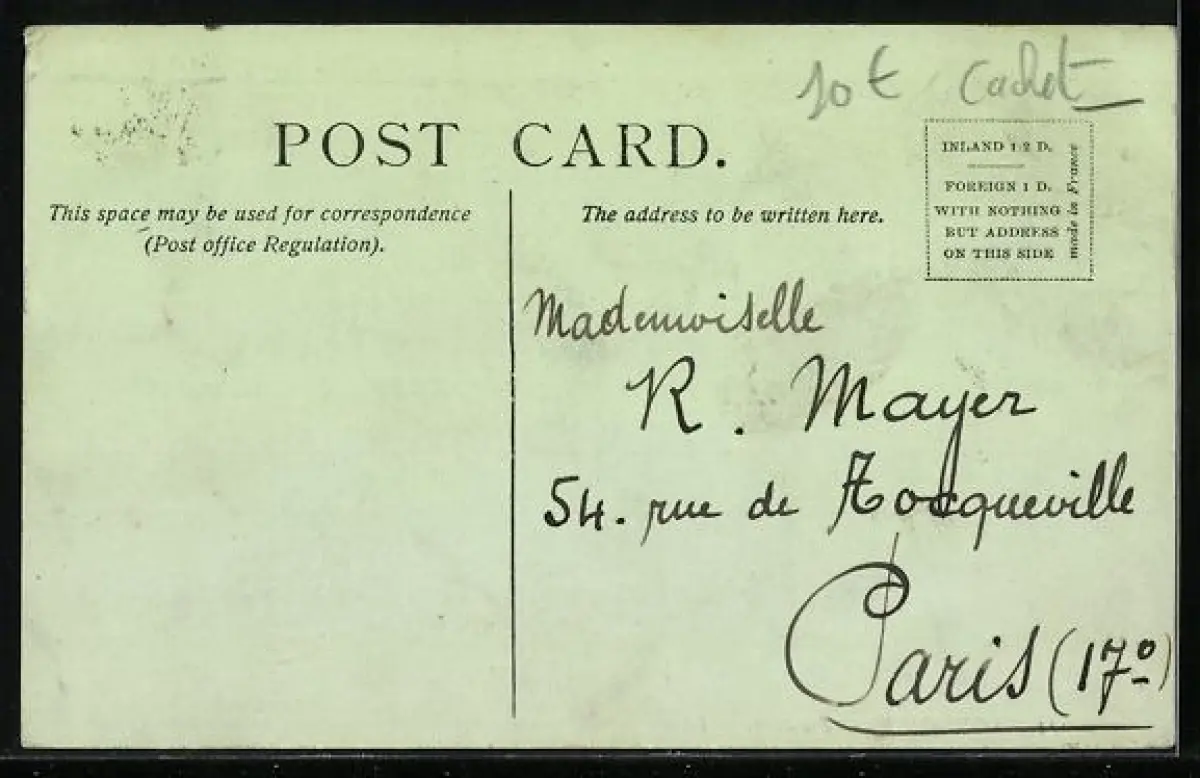 10 € Cachet
POST CARD.
This space may be used for correspondence
(Post office Regulation).
The address to be written here.
INLAND 1/2 D.
FOREIGN 1 D.
WITH NOTHING
BUT ADDRESS
ON THIS SIDE
made in France
Mademoiselle
R. Mayer
54. rue de Tocqueville
Paris (17º)